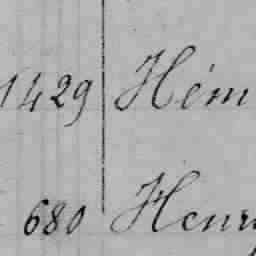 1429 Hém
680 Henry